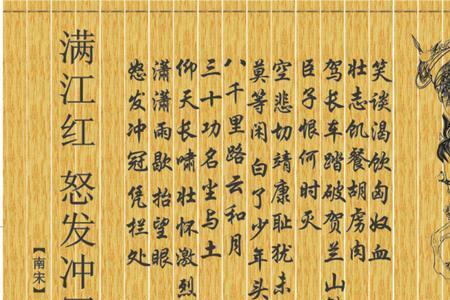 满江红 怒发冲
【南宋】
怒发冲冠凭栏处
潇潇雨歇抬望眼
仰天长啸壮怀激烈
三十功名尘与土
八千里路云和月
莫等闲白了少年头
空悲切靖康耻犹未
臣子恨何时灭
驾长车踏破贺兰山
壮志饥餐胡虏肉
笑谈渴饮匈奴血